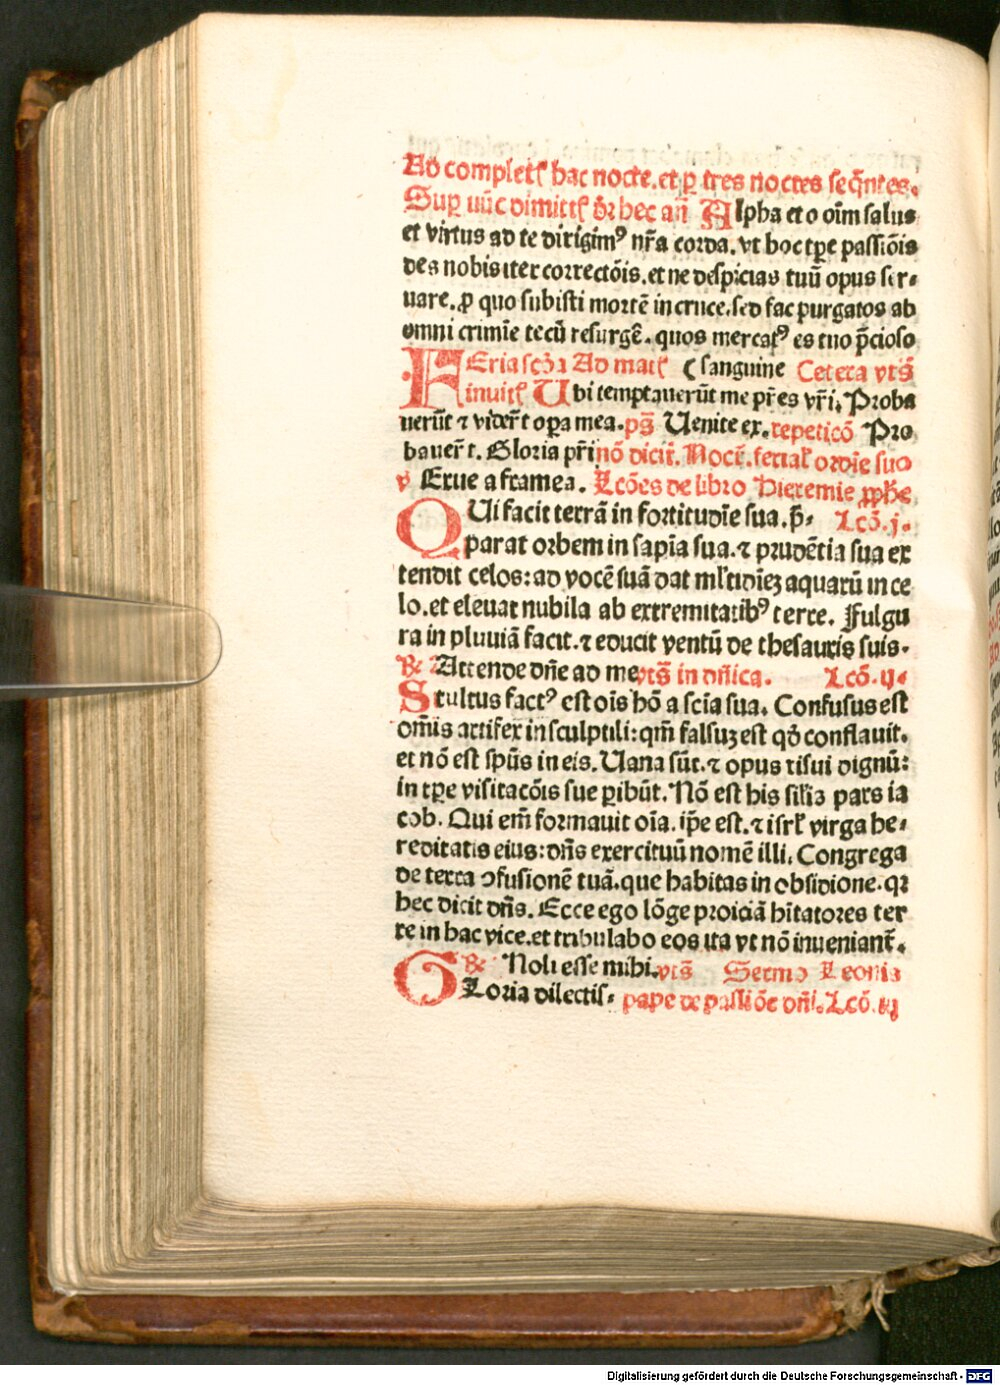 Ad complet͛ hac nocte. et ꝑ tres noctes seq̄ntes.
Suꝑ nūc dimitt͛ dr̄ hec añ Alpha et o oīm salus
et virtus ad te dirigimꝰ nr̄a corda. vt hoc tꝑe passiōis
des nobis iter correctōis. et ne despicias tuū opus ser⸗
uare. ꝓ quo subisti mortē in cruce. sed fac purgatos ab
omni crimīe tecū resurgē. quos mercatꝰ es tuo p̄cioso
FEria scd̄a Ad mat͛ ( sanguine Cetera vts̄
inuit͛ Ubi temptauerūt me pr̄es vr̄i. Proba
uerūt ⁊ viderūt oꝑa mea. ps̄ Uenite ex. repeticō Pro
bauer̄t. Gloria pr̄i nō dicit̄. Noct̄. ferial̓ ordīe suo
v Erue a framea. Lcōes de libro Hieremie ꝓph̄e
QUi facit terrā in fortitudīe sua. p̄⸗ Lcō. j.
parat orbem in sapīa sua. ⁊ prudētia sua ex
tendit celos: ad vocē suā dat ml̓tidīeꝫ aquarū in ce
lo. et eleuat nubila ab extremitatibꝰ terre. Fulgu
ra in pluuiā facit. ⁊ educit ventū de thesauris suis.
℟ Attende dn̄e ad me vts̄ in dn̄ica. Lcō. ij.
Stultus factꝰ est oīs hō a scīa sua. Confusus est
om̄is artifex in sculptili: qm̄ falsuꝫ est qd̄ conflauit.
et nō est spūs in eis. Uana sūt. ⁊ opus risui dignū:
in tꝑe visitacōis sue ꝑibūt. Nō est his sil̓ia pars ia
cob. Qui em̄ formauit oīa. ip̄e est. ⁊ isrl̓ virga he⸗
reditatis eius: dn̄s exercituū nomē illi. Congrega
de terra ↄfusionē tuā. que habitas in obsidione. qꝛ
hec dicit dn̄s. Ecce ego lōge proiciā hītatores ter
re in hac vice. et tribulabo eos ita vt nō inueniant̄.
℟ Noli esse mihi. vts̄ Sermo Leonis
GLoria dilectis⸗ pape de passiōe dn̄i. Lcō. iij
Digitalisierung gefördert durch die Deutsche Forschungsgemeinschaft - DFG